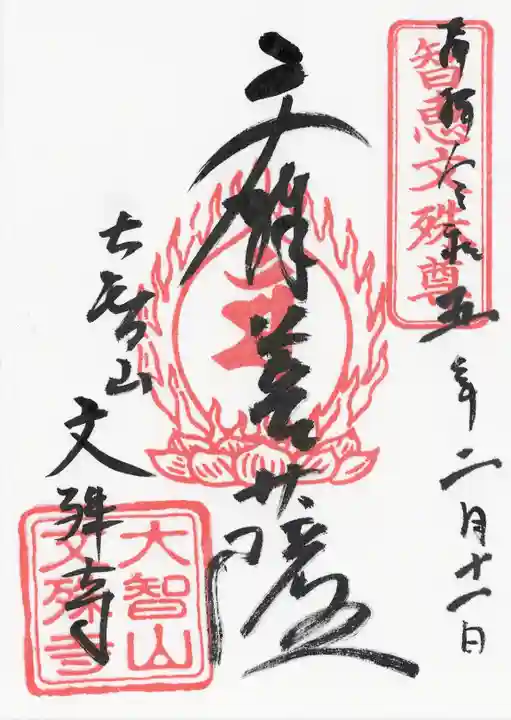 智恵文殊尊
奉拝令和五年二月十一日
文殊菩薩
大智山
文殊寺
大智山
文殊寺